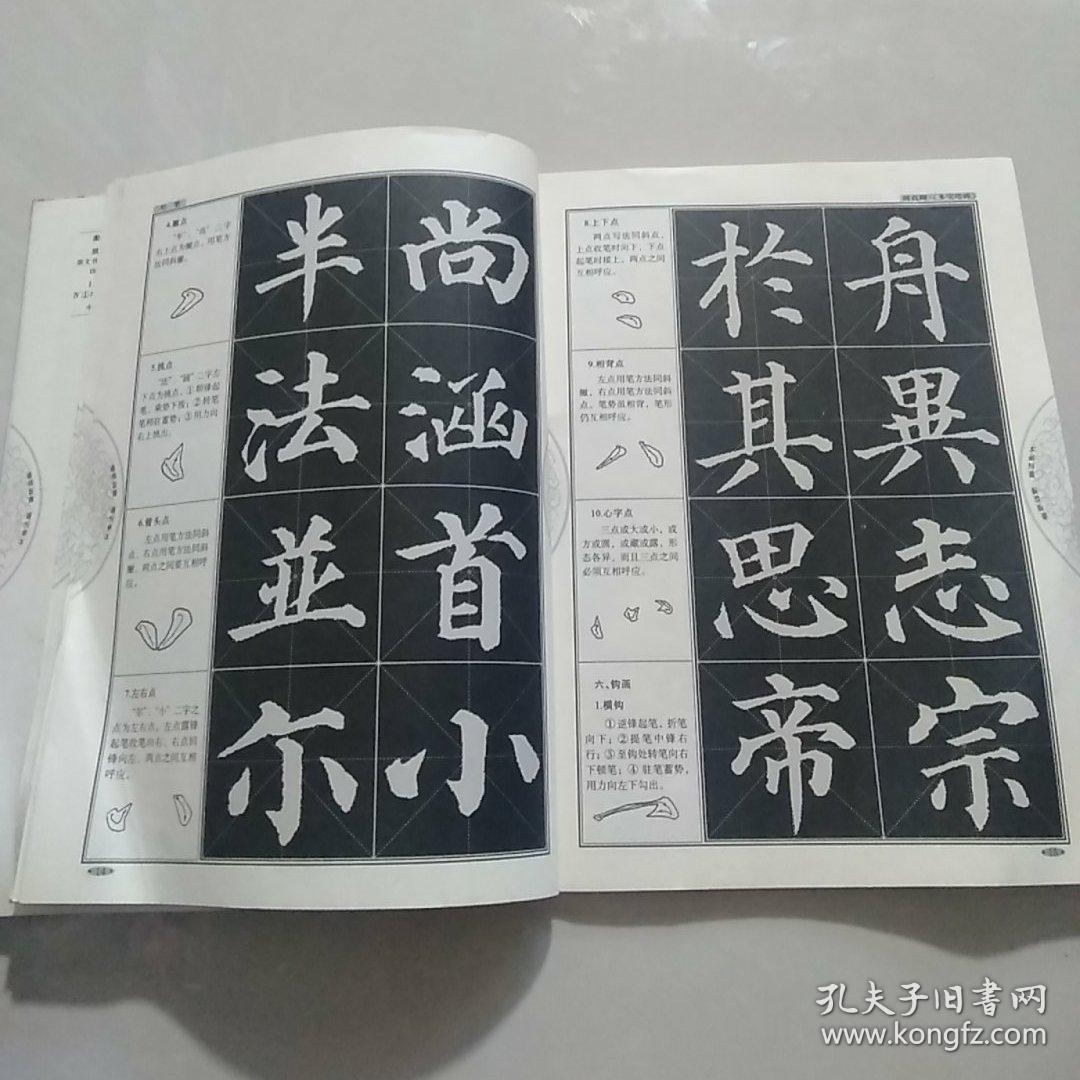 4.撇点
"半"、"尚"二字
右上点为撇点,用笔方
法同斜撇。
半
尚
5.挑点
"法"、"涵"二字左
下点为挑点,①顿锋起
笔,乘势下按;②转笔
稍驻蓄势;③用力向
右上挑出。
法
涵
6.羊头点
左点用笔方法同斜
点,右点用笔方法同斜
撇,两点之间要互相呼
应。
並
首
7.左右点
"尔"、"小"二字之
点为左右点,左点露锋
起笔收笔向右,右点回
锋向左,两点之间互相
呼应。
尔
小
14
8.上下点
两点写法同斜点,
上点收笔时向下,下点
起笔时接上,两点之间
互相呼应。
於
舟
9.相背点
左点用笔方法同斜
撇,右点用笔方法同斜
点,笔势虽相背,笔形
仍互相呼应。
其
異
10.心字点
三点或大或小,或
方或圆,或藏或露,形
态各异,而且三点之间
必须互相呼应。
思
志
六、钩画
1.横钩
①逆锋起笔,折笔
向下;②提笔中锋右
行;③至钩处转笔向右
下顿笔;④驻笔蓄势,
用力向左下勾出。
帝
宗
孔夫子旧书网
www.kongfz.com